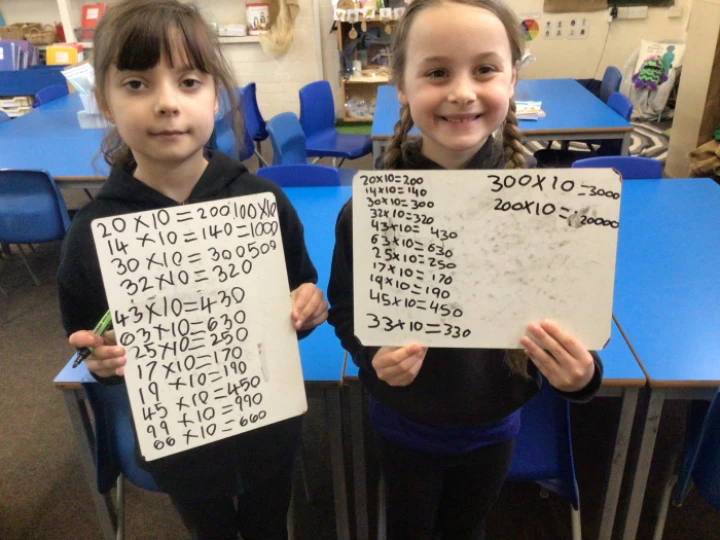 20 X 10 = 200 100 X 10
14 X 10 = 140 = 1000
30 X 10 = 300 509
32 X 10 = 320
43 X 10 = 430
63 X 10 = 630
25 X 10 = 250
17 X 10 = 170
19 X 10 = 190
45 X 10 = 450
99 X 10 = 990
66 X 10 = 660
20 X 10 = 200
14 X 10 = 140
30 X 10 = 300
32 X 10 = 320
43 X 10 = 430
63 X 10 = 630
25 X 10 = 250
17 X 10 = 170
19 X 10 = 190
45 X 10 = 450
33 X 10 = 330
300 X 10 = 3000
200 X 10 = 20000